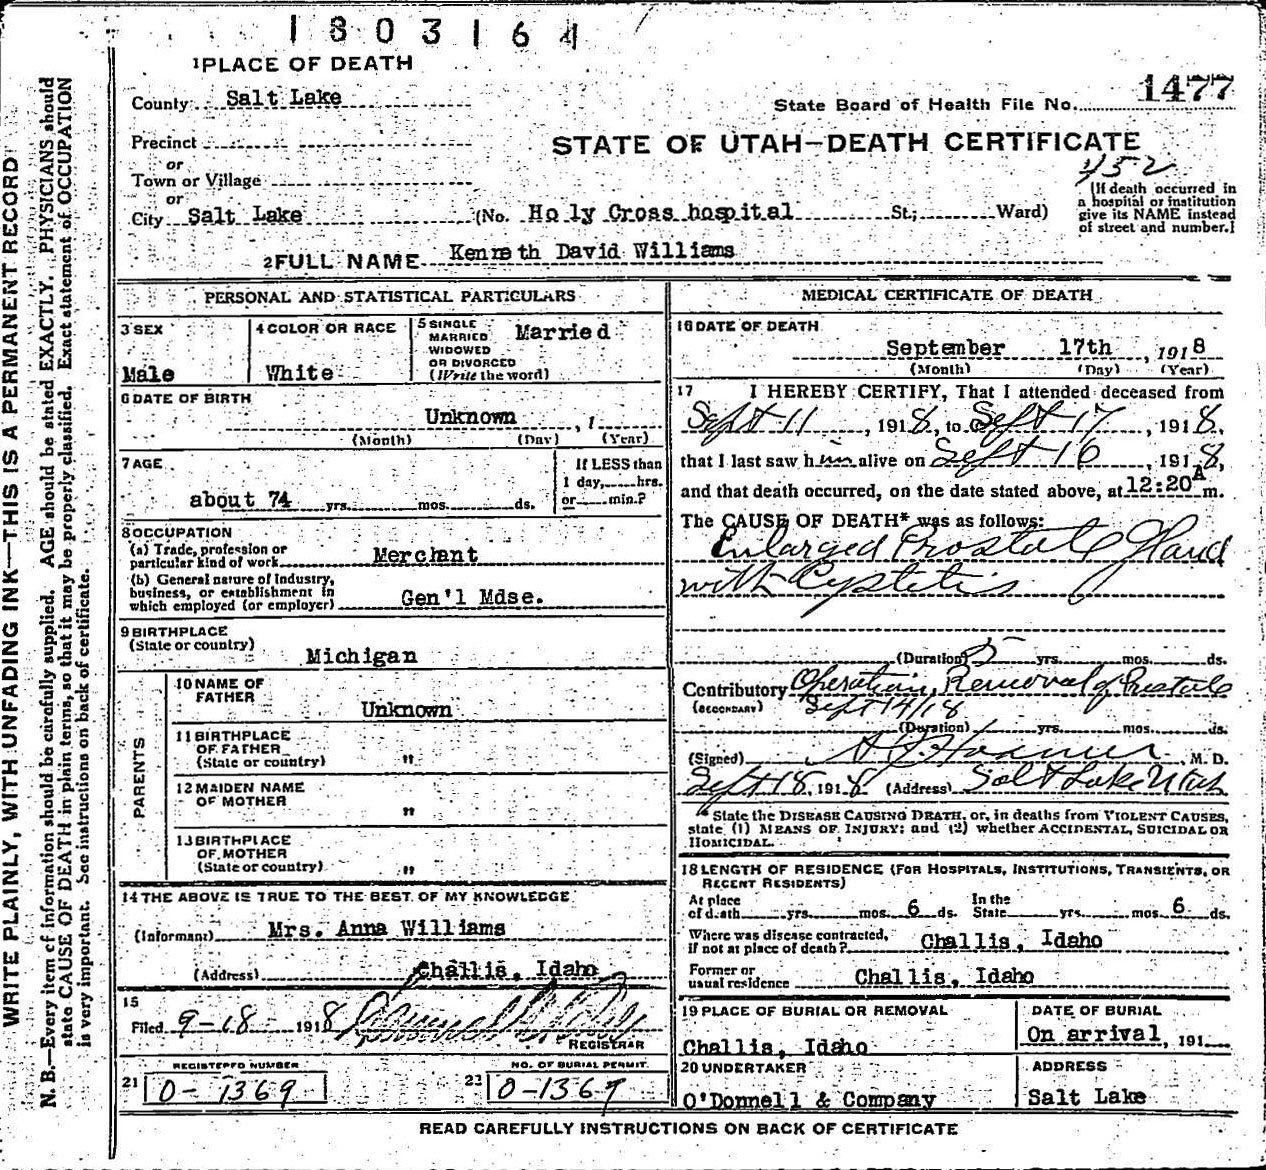 1803164
1 PLACE OF DEATH
County Salt Lake
State Board of Health File No. 1477
Precinct
STATE OF UTAH—DEATH CERTIFICATE
or
452
Town or Village
or
City Salt Lake (No. Holy Cross hospital St.; Ward)
[If death occurred in
a hospital or institution
give its NAME instead
of street and number.]
2 FULL NAME Kenneth David Williams
PERSONAL AND STATISTICAL PARTICULARS
3 SEX
Male
4 COLOR OR RACE
White
5 SINGLE
MARRIED
WIDOWED
OR DIVORCED
(Write the word)
Married
6 DATE OF BIRTH
Unknown , 1
(Month) (Day) (Year)
7 AGE
about 74 yrs. mos. ds.
If LESS than
1 day, hrs.
or min.?
8 OCCUPATION
(a) Trade, profession or
particular kind of work Merchant
(b) General nature of Industry,
business, or establishment in
which employed (or employer) Gen'l Mdse.
9 BIRTHPLACE
(State or country)
Michigan
PARENTS
10 NAME OF
FATHER
Unknown
11 BIRTHPLACE
OF FATHER
(State or country) "
12 MAIDEN NAME
OF MOTHER
"
13 BIRTHPLACE
OF MOTHER
(State or country) "
14 THE ABOVE IS TRUE TO THE BEST OF MY KNOWLEDGE
(Informant) Mrs. Anna Williams
(Address) Challis, Idaho
15
Filed 9-18- 1918
REGISTRAR
REGISTERED NUMBER
21 0-1369
NO. OF BURIAL PERMIT
22 0-1369
MEDICAL CERTIFICATE OF DEATH
16 DATE OF DEATH
September 17th , 1918
(Month) (Day) (Year)
17 I HEREBY CERTIFY, That I attended deceased from
Sept 11 , 1918, to Sept 17 , 1918,
that I last saw him alive on Sept 16 , 1918,
and that death occurred, on the date stated above, at 12:20 A m.
The CAUSE OF DEATH* was as follows:
Enlarged Prostate Gland
with Cystitis
(Duration) 5 yrs. mos. ds.
Contributory Operation, Removal of Prostate
(SECONDARY) Sept 14/18
(Duration) yrs. mos. ds.
(Signed) , M. D.
Sept 18, 1918 (Address) Salt Lake Utah
*State the DISEASE CAUSING DEATH, or, in deaths from VIOLENT CAUSES,
state (1) MEANS OF INJURY; and (2) whether ACCIDENTAL, SUICIDAL OR
HOMICIDAL.
18 LENGTH OF RESIDENCE (FOR HOSPITALS, INSTITUTIONS, TRANSIENTS, OR
RECENT RESIDENTS)
At place
of death yrs. mos. 6 ds.
In the
State yrs. mos. 6 ds.
Where was disease contracted,
if not at place of death? Challis, Idaho
Former or
usual residence Challis, Idaho
19 PLACE OF BURIAL OR REMOVAL
Challis, Idaho
DATE OF BURIAL
On arrival, 191
20 UNDERTAKER
O'Donnell & Company
ADDRESS
Salt Lake
READ CAREFULLY INSTRUCTIONS ON BACK OF CERTIFICATE
WRITE PLAINLY, WITH UNFADING INK—THIS IS A PERMANENT RECORD
N. B.—Every item of information should be carefully supplied. AGE should be stated EXACTLY. PHYSICIANS should
state CAUSE OF DEATH in plain terms, so that it may be properly classified. Exact statement of OCCUPATION
is very important. See instructions on back of certificate.